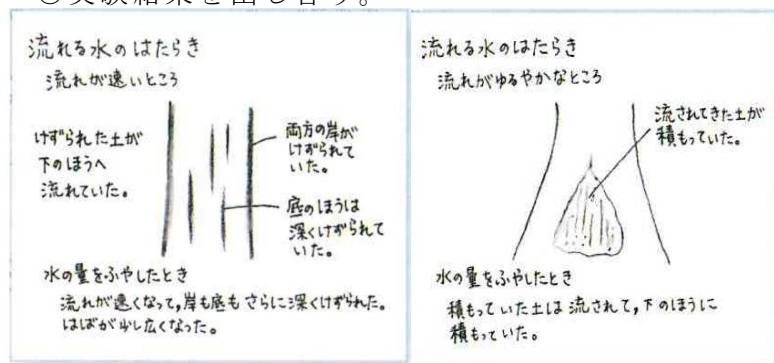 ○実験結果を出し合う。
流れる水のはたらき
流れが速いところ
けずられた土が
下のほうへ
流れていた。
両方の岸が
けずられて
いた。
底のほうは
深くけずられて
いた。
水の量をふやしたとき
流れが速くなって,岸も底もさらに深くけずられた。
はばが少し広くなった。
流れる水のはたらき
流れがゆるやかなところ
流されてきた土が
積もっていた。
水の量をふやしたとき
積もっていた土は流されて,下のほうに
積もっていた。